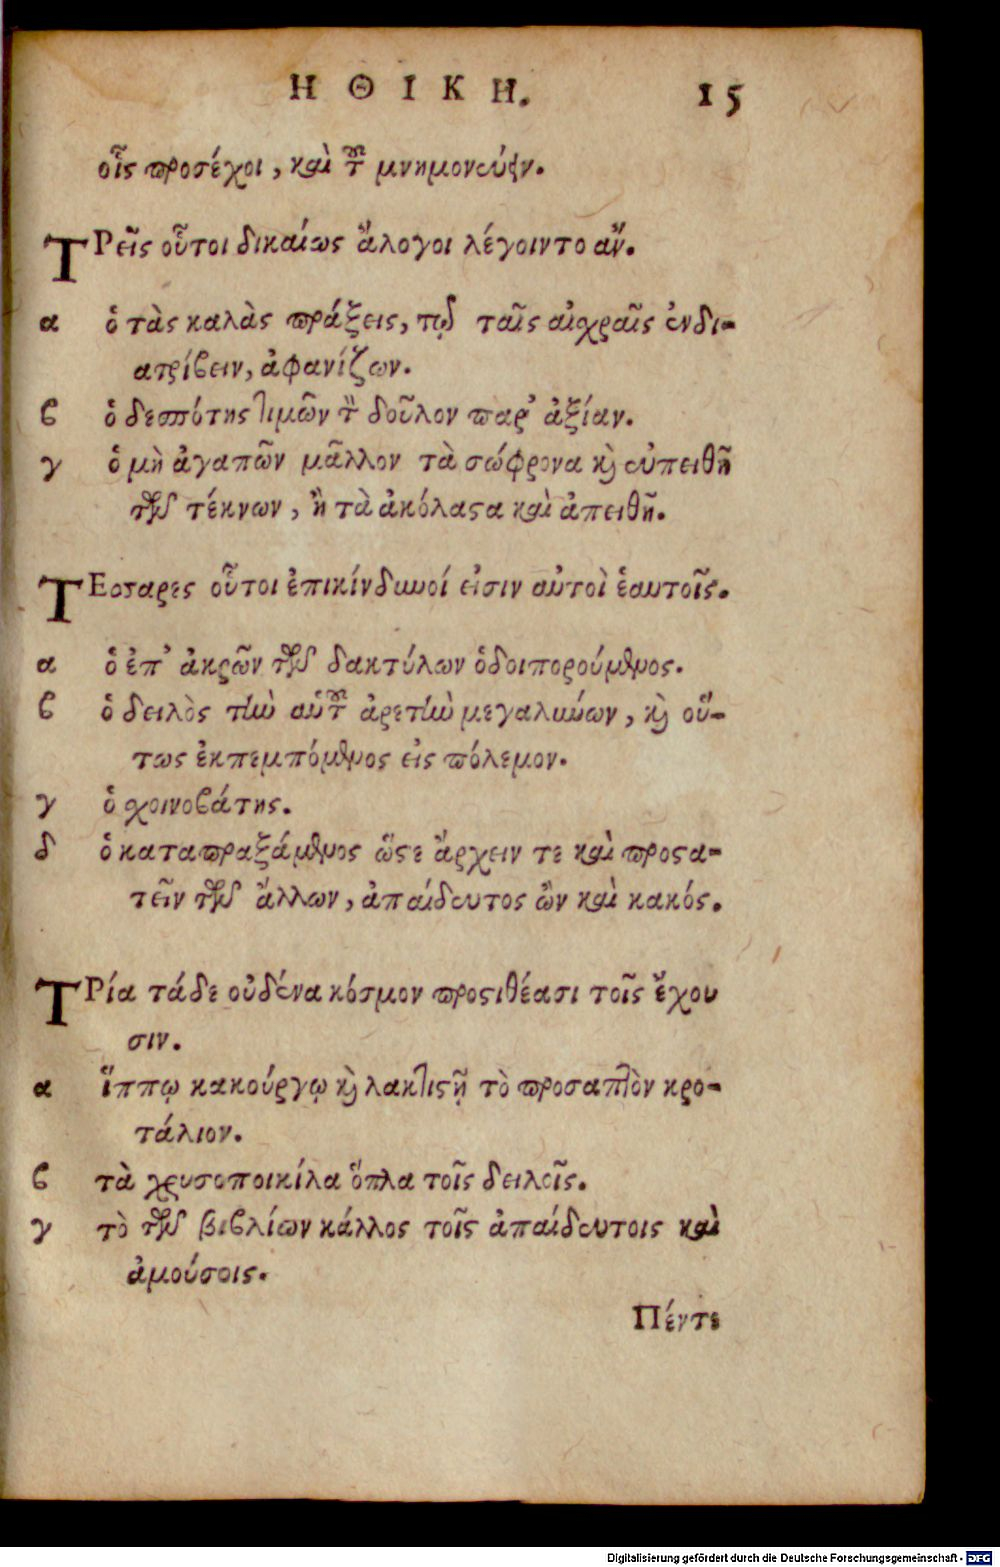 ΗΘΙΚΗ. 15
οἷς προσέχοι, καὶ τοῦ μνημονεύειν.
ΤΡεῖς οὗτοι δικαίως ἄλογοι λέγοιντο ἄν.
α ὁ τὰς καλὰς πράξεις, τῷ ταῖς αἰχραῖς ἐνδι-
ατρίβειν, ἀφανίζων.
β ὁ δεσπότης τιμῶν τὸν δοῦλον παρ' ἀξίαν.
γ ὁ μὴ ἀγαπῶν μᾶλλον τὰ σώφρονα καὶ εὐπειθῆ
τῶν τέκνων, ἢ τὰ ἀκόλαστα καὶ ἀπειθῆ.
ΤΕσσαρες οὗτοι ἐπικίνδυνοί εἰσιν αὐτοὶ ἑαυτοῖς.
α ὁ ἐπ' ἀκρῶν τῶν δακτύλων ὁδοιπορούμενος.
β ὁ δειλὸς τὴν αὑτοῦ ἀρετὴν μεγαλύνων, καὶ οὕ-
τως ἐκπεμπόμενος εἰς πόλεμον.
γ ὁ χοινοβάτης.
δ ὁ καταπραξάμενος ὥστε ἄρχειν τε καὶ προστα-
τεῖν τῶν ἄλλων, ἀπαίδευτος ὢν καὶ κακός.
ΤΡία τάδε οὐδένα κόσμον προστιθέασι τοῖς ἔχου
σιν.
α ἵππῳ κακούργῳ καὶ λακτιστῇ τὸ προσαπτὸν κρο-
τάλιον.
β τὰ χρυσοποικίλα ὅπλα τοῖς δειλοῖς.
γ τὸ τῶν βιβλίων κάλλος τοῖς ἀπαίδευτοις καὶ
ἀμούσοις.
Πέντε
Digitalisierung gefördert durch die Deutsche Forschungsgemeinschaft - DFG